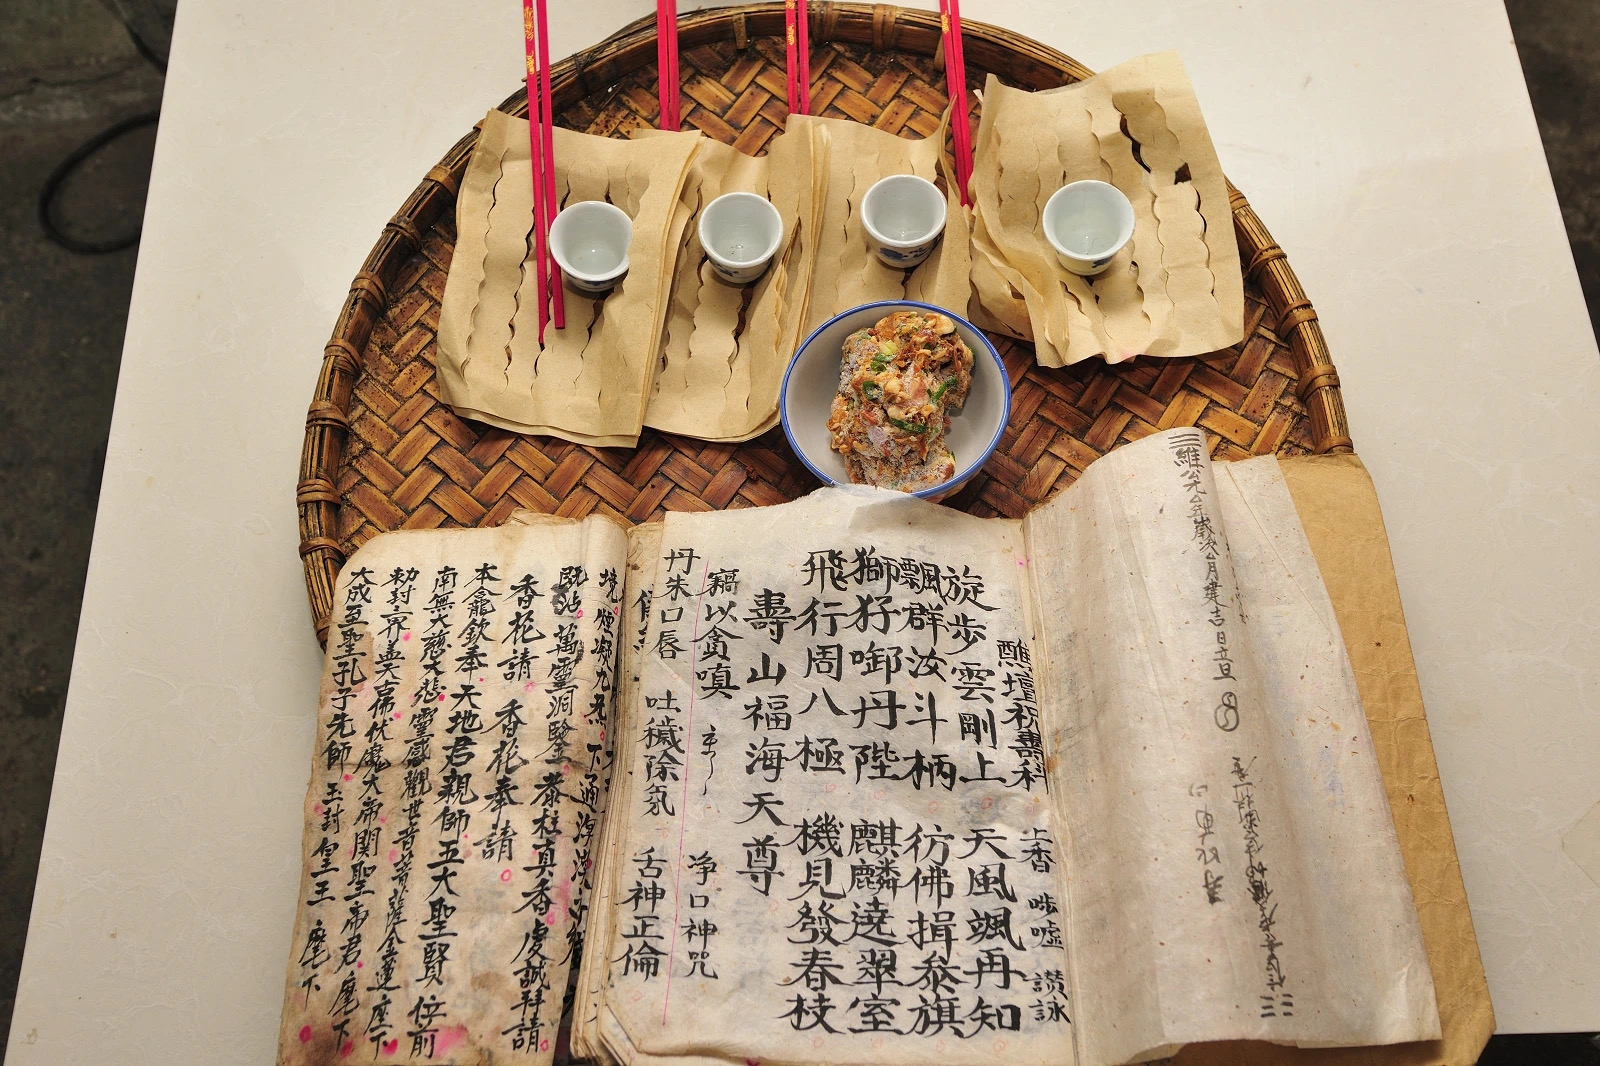 三維公元 年歲次 月建吉日立旦
醮壇祝壽科 上香 步虛 讃詠
旋步雲剛上 天風颯再知
飄群汝斗柄 彷彿揖參旗
獅㺃啣丹陛 麒麟遶翠室
飛行周八極 機見發春枝
壽山福海天尊
竊以貪嗔 净口神咒
丹朱口唇 吐穢除氛 舌神正倫
既沾 萬靈洞鑒 恭柱真香 虔誠拜請
香花請 香花奉請
本龕欽奉天地君親師五大聖賢 位前
南無大慈大悲靈感觀世音菩薩金蓮座下
勅封三界盖天古佛伏魔大帝関聖帝君 麾下
大成至聖孔子先師 玉封皇王 麾下